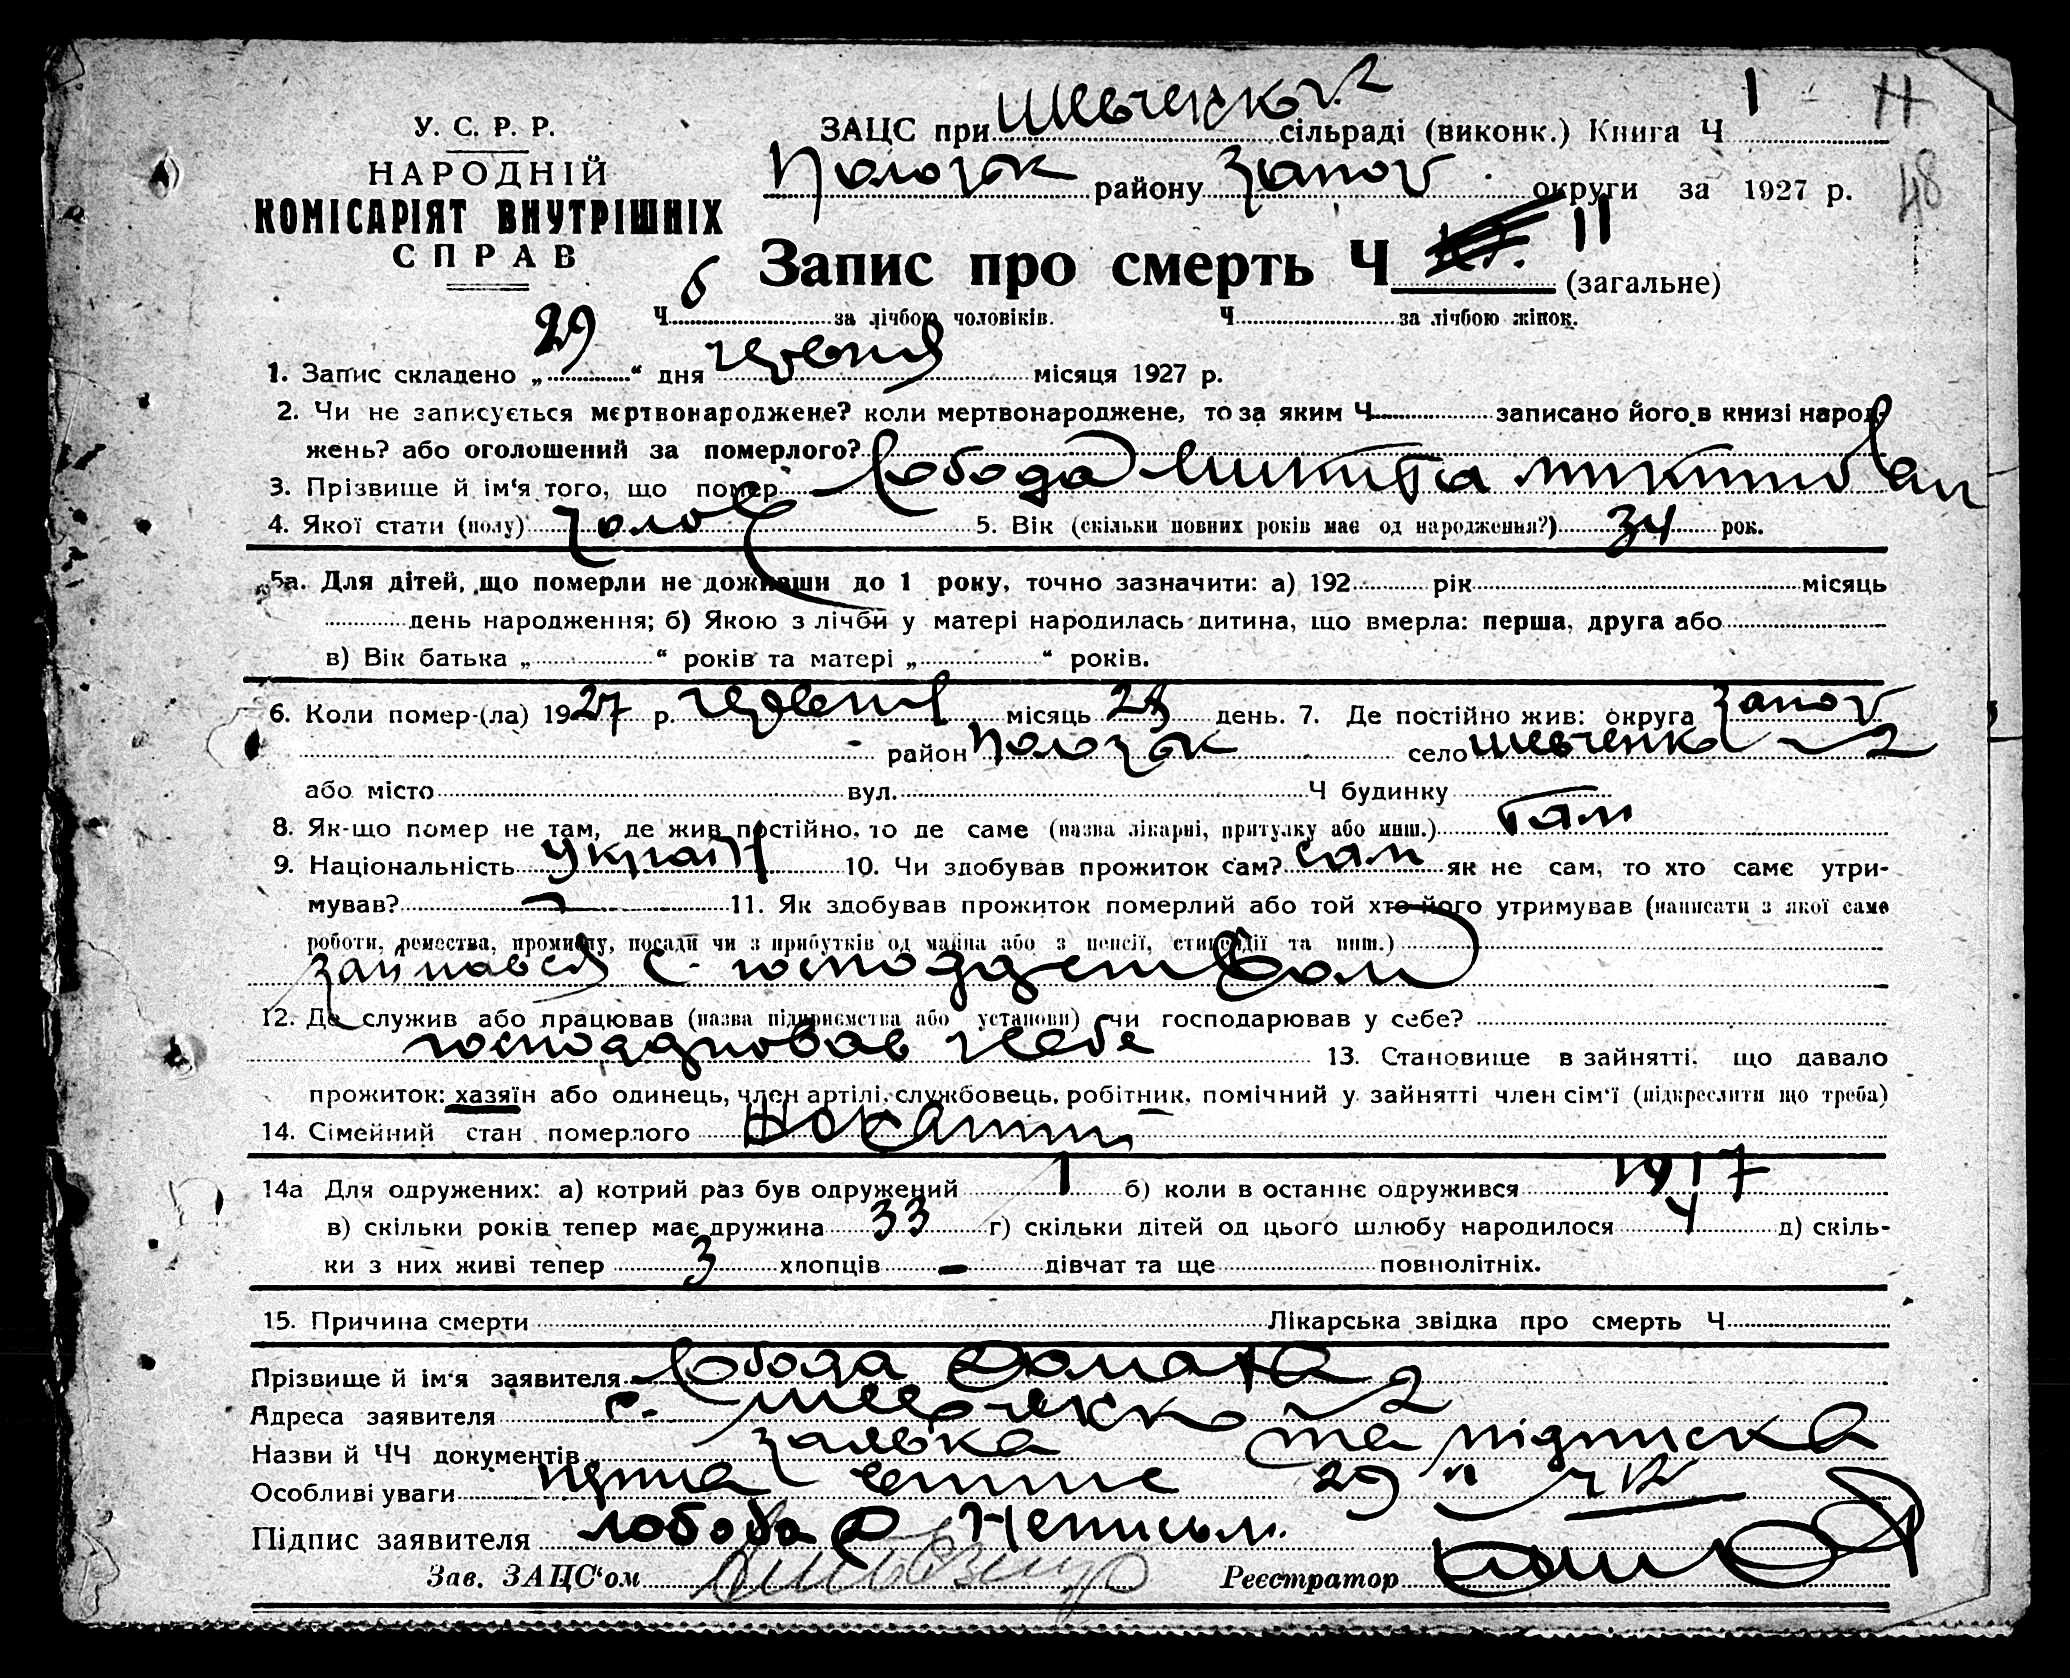 У. С. Р. Р.
НАРОДНІЙ
КОМІСАРІЯТ ВНУТРІШНІХ
СПРАВ
ЗАЦС при Шевченков. 2 сільраді (виконк.) Книга Ч 1 11
Пологок району Запор округи за 1927 р. 48
Запис про смерть Ч 11 (загальне)
Ч 6 за лічбою чоловіків. Ч за лічбою жінок.
1. Запис складено „ 29 “ дня червня місяця 1927 р.
2. Чи не записується мертвонароджене? коли мертвонароджене, то за яким Ч записано його в книзі народ-
жень? або оголошений за померлого?
3. Прізвище й ім‘я того, що помер Лобода Микита Микитован
4. Якої стати (полу) чолов 5. Вік (скільки повних років має од народження?) 34 рок.
5а. Для дітей, що померли не доживши до 1 року, точно зазначити: а) 192 рік місяць
день народження; б) Якою з лічби у матері народилась дитина, що вмерла: перша, друга або
в) Вік батька „ “ років та матері „ “ років.
6. Коли помер-(ла) 1927 р. червня місяць 28 день. 7. Де постійно жив: округа Запор
район Пологок село Шевченко 2
або місто вул. Ч будинку
8. Як-що помер не там, де жив постійно, то де саме (назва лікарні, притулку або инш.) там
9. Національність україн 10. Чи здобував прожиток сам? сам як не сам, то хто саме утри-
мував? 11. Як здобував прожиток померлий або той хто його утримував (написати з якої саме
роботи, ремества, промислу, посади чи з прибутків од майна або з пенсії, стипендії та инш.)
займався с. господарством
12. Де служив або працював (назва підприємства або установи) чи господарював у себе?
господарював у себе 13. Становище в зайнятті, що давало
прожиток: хазяїн або одинець, член артілі, службовець, робітник, помічний у зайнятті член сім‘ї (підкреслити що треба)
14. Сімейний стан померлого жонатий
14а Для одружених: а) котрий раз був одружений 1 б) коли в останнє одружився 1917
в) скільки років тепер має дружина 33 г) скільки дітей од цього шлюбу народилося 4 д) скіль-
ки з них живі тепер 3 хлопців - дівчат та ще повнолітніх.
15. Причина смерти Лікарська звідка про смерть Ч
Прізвище й ім‘я заявителя Лобода
Адреса заявителя с. Шевченко 2
Назви й ЧЧ документів заявка та підписка
Особливі уваги 29
Підпис заявителя Лобода Неписьм.
Зав. ЗАЦС‘ом Реєстратор